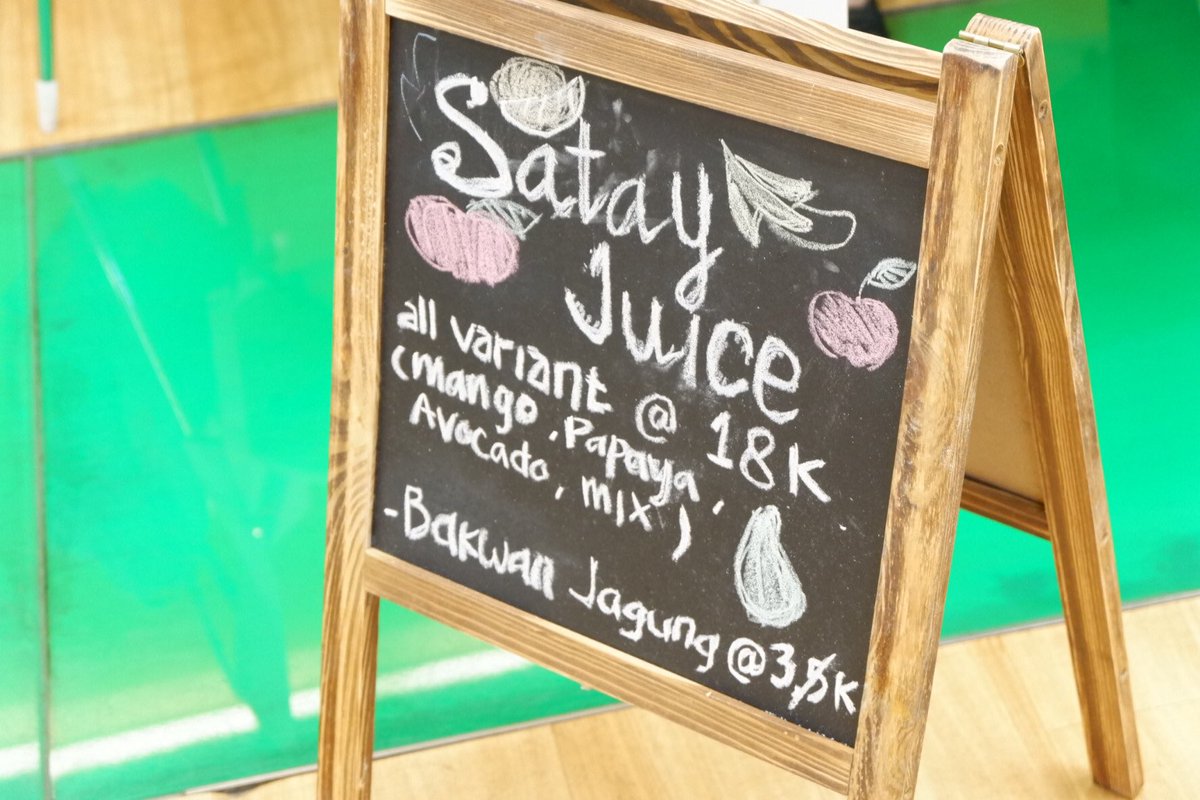 Satay
Juice
all variant @ 18K
(mango, Papaya,
Avocado, mix)
-Bakwan Jagung @3,5K